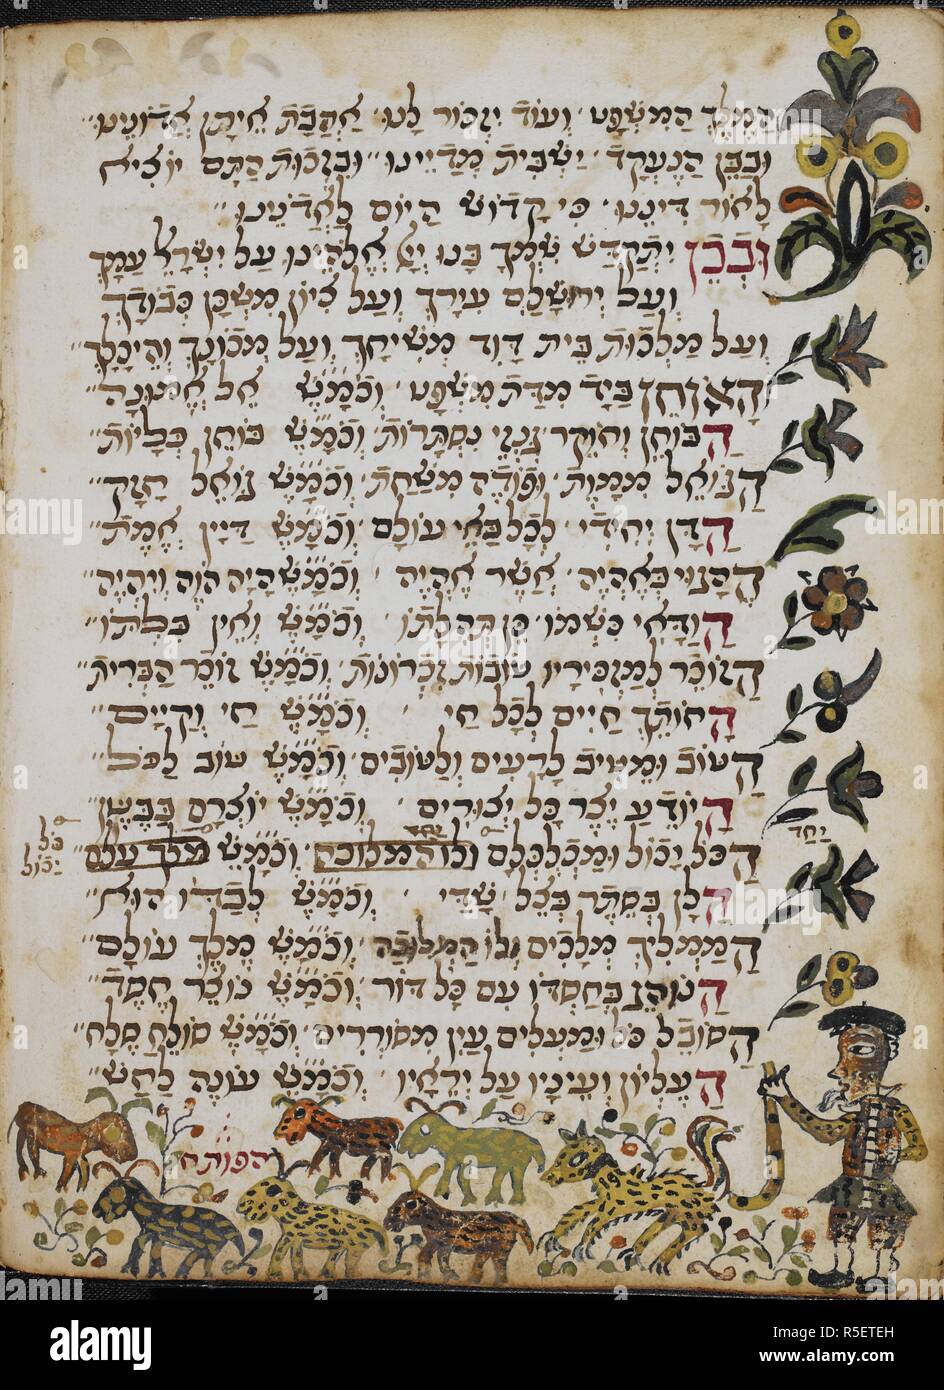 הַמֶּלֶךְ הַמִּשְׁפָּט׃ וְעוֹד יִזְכּוֹר לָנוּ׃ אַהֲבַת אֵיתָן אֲדוֹנֵינוּ׃
וּבַבֵּן הַנֶּעֱקַד׃ יַשְׁבִּית מְדַיְּינֵנוּ׃ וּבִזְכוּת הַתָּם יוֹצִיא
לָאוֹר דִּינֵנוּ׃ כִּי קָדוֹשׁ הַיּוֹם לַאֲדֹנֵינוּ׃
וּבְכֵן יִתְקַדַּשׁ שִׁמְךָ בָּנוּ יְיָ אֱלֹהֵינוּ עַל יִשְׂרָאֵל עַמֶּךָ
וְעַל יְרוּשָׁלַם עִירֶךָ וְעַל צִיּוֹן מִשְׁכַּן כְּבוֹדֶךָ
וְעַל מַלְכוּת בֵּית דָּוִד מְשִׁיחֶךָ וְעַל מְכוֹנֶךָ וְהֵיכָלֶךָ׃
הָאוֹחֵז בְּיַד מִדַּת מִשְׁפָּט׃ וְכָמַֹשֹ אֵל אֱמוּנָה׃
הַבּוֹחֵן וְחוֹקֵר גִּנְזֵי נִסְתָּרוֹת׃ וְכָמַֹשֹ בּוֹחֵן כְּלָיוֹת׃
הַגּוֹאֵל מִמָּוֶת וּפוֹדֶה מִשַּׁחַת׃ וְכָמַֹשֹ גּוֹאֵל חָזָק׃
הַדָּן יְחִידִי לְכָל בָּאֵי עוֹלָם׃ וְכָמַֹשֹ דַּיָּין אֱמֶת׃
הֶהָגוּי בְּאֶהְיֶה׃ אֲשֶׁר אֶהְיֶה׃ וְכָמַֹשֹ הָיָה הֹוֶה וְיִהְיֶה׃
הַוַּדָּאִי כִּשְׁמוֹ׃ כֵּן תְּהִלָּתוֹ׃ וְכָמַֹשֹ וְאֵין בִּלְתּוֹ׃
הַזּוֹכֵר לְמַזְכִּירָיו טוֹבוֹת זִכְרוֹנוֹת׃ וְכָמַֹשֹ זוֹכֵר הַבְּרִית׃
הַחוֹתֵךְ חַיִּים לְכָל חַי׃ וְכָמַֹשֹ חַי וְקַיָּים׃
הַטּוֹב וּמֵטִיב לָרָעִים וְלַטּוֹבִים׃ וְכָמַֹשֹ טוֹב לַכֹּל׃
הַיּוֹדֵעַ יֵצֶר כָּל יְצוּרִים׃ וְכָמַֹשֹ יוֹצְרָם בַּבֶּטֶן׃
כל
יכול
יחד
יחד
הַכֹּל יָכוֹל וּמְכַלְכְּלָם ולו המלוכה׃ וְכָמַֹשֹ מלך עולם׃
הַלָּן בְּסֵתֶר בְּצֵל שַׁדַּי׃ וְכָמַֹשֹ לְבַדּוֹ הוּא׃
הַמַּמְלִיךְ מְלָכִים וְלוֹ הַמְּלוּכָה׃ וְכָמַֹשֹ מֶלֶךְ עוֹלָם׃
הַנּוֹהֵג בְּחַסְדּוֹ עִם כָּל דּוֹר׃ וְכָמַֹשֹ נוֹצֵר חֶסֶד׃
הַסּוֹבֵל כֹּל וּמַעְלִים עַיִן מִסּוֹרְרִים׃ וְכָמַֹשֹ סוֹלֵחַ סֶלָה׃
הָעֶלְיוֹן וְעֵינָיו עַל יְרֵאָיו׃ וְכָמַֹשֹ עוֹנֶה לַחַשׁ׃
הפותח
a alamy stock photo
alamy
Image ID: R5ETEH
www.alamy.com